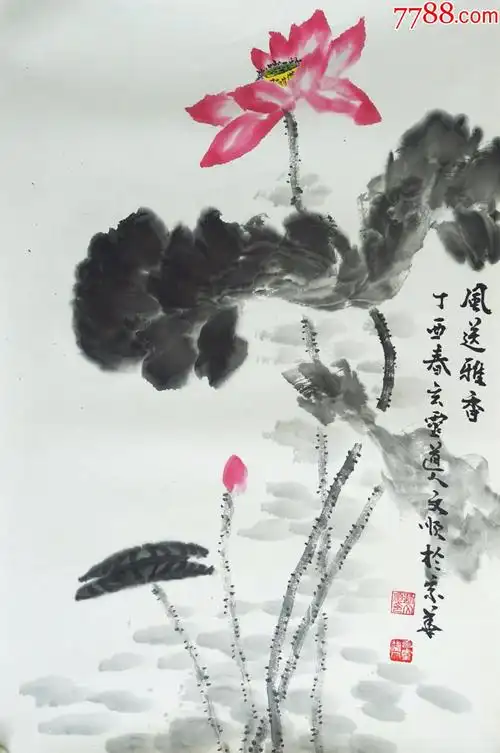 7788.com
風送雅香
丁酉春玄靈道人文順於京華